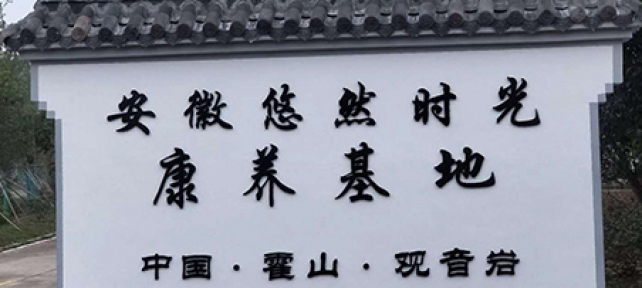 安徽悠然时光
康养基地
中国·霍山·观音岩